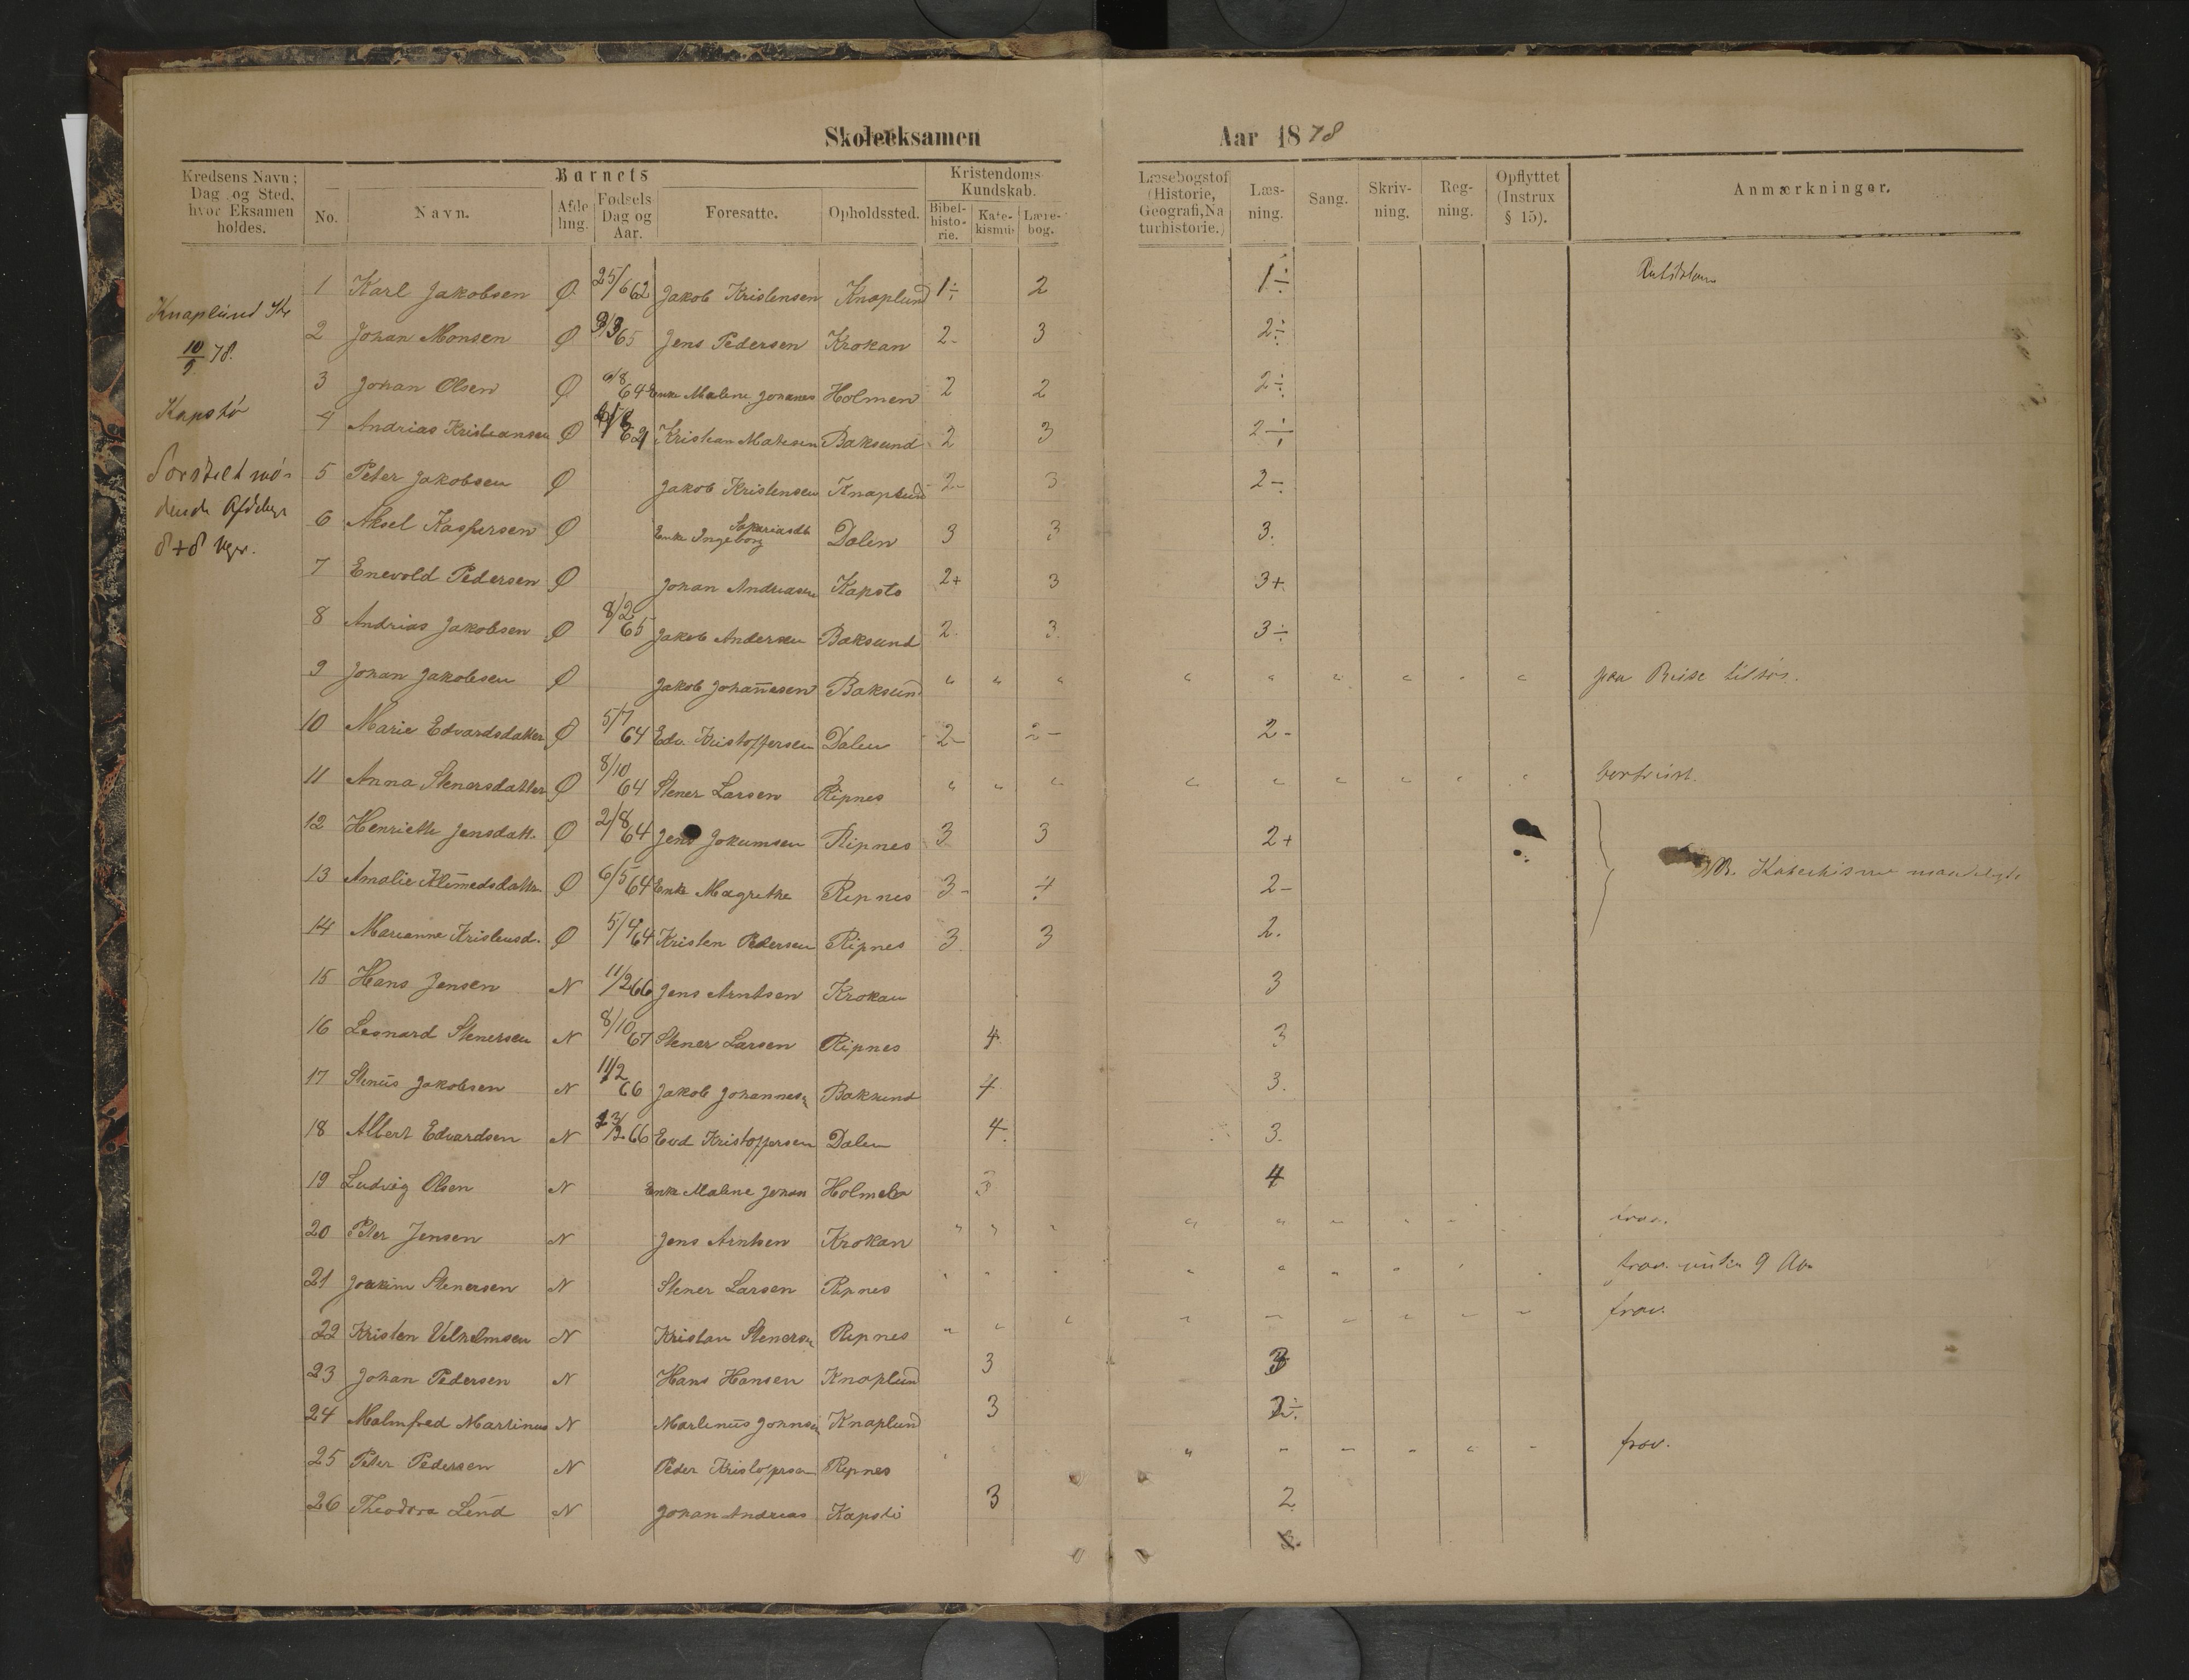 Skoleeksamen Aar 1878
Kredsens Navn; Dag og Sted, hvor Eksamen holdes.
Barnets
No. Navn. Afdeling. Fødsels Dag og Aar. Foresatte. Opholdssted.
Kristendoms-Kundskab.
Bibelhistorie. Katekismus. Lærebog.
Læsebogstof (Historie, Geografi, Naturhistorie.)
Læsning. Sang. Skrivning. Regning. Opflyttet (Instrux § 15). Anmærkninger.
Knaplund
10/9 78.
Kapstø
8+8 Uger.
1 Karl Jakobsen Ø 25/6 62 Jakob Kristensen Knaplund 1÷ 2 1÷
2 Johan Monsen Ø 65 Jens Pedersen Krokan 2- 3 2÷
3 Johan Olsen Ø 64 Enke Malene Johanes Holmen 2 2 2÷
4 Andrias Kristiansen Ø Kristian Matesen Baksund 2 3 2÷
5 Peter Jakobsen Ø Jakob Kristensen Knaplund 2- 3 2÷
6 Aksel Kaspersen Ø Enke Ingeborg Sakariasdt Dalen 3 3 3.
7 Enevold Pedersen Ø Johan Andreasen Kapstø 2+ 3 3+
8 Andrias Jakobsen Ø 8/2 65 Jakob Andersen Baksund 2. 3 3÷
9 Johan Jakobsen Ø Jakob Johannesen Baksund " " " " " " " " " paa Reise
10 Marie Edvardsdatter Ø 5/7 64 Edv. Kristoffersen Dalen 2- 2- 2-
11 Anna Stenersdatter Ø 8/10 64 Stener Larsen Ripnes " " " " " " " " " bortreist.
12 Henriette Jensdatt. Ø 2/8 64 Jens Jokumsen Ripnes 3 3 2+
13 Amalie Ø 6/5 64 Enke Magrethe Ripnes 3- 4 2- Katechisme
14 Marianne Kristensd. Ø 5/4 64 Kristen Pedersen Ripnes 3 3 2.
15 Hans Jensen N 11/2 66 Jens Arntsen Krokan 3
16 Leonard Stenersen N 8/10 67 Stener Larsen Ripnes 4 3
17 Stenus Jakobsen N 11/2 66 Jakob Johannes: Baksund 4 3.
18 Albert Edvardsen N 66 Evd Kristoffersen Dalen 4. 3.
19 Ludvig Olsen N Enke Malene Johan Holmen 3 4
20 Peter Jensen N Jens Arntsen Krokan " " " " " " " " frav.
21 Joakim Stenersen N Stener Larsen Ripnes " " " " " " " " frav. under 9 Aar
22 Kristen Vilhelmsen N Kristian Stenersn Ripnes " " " " " " " " " frav.
23 Johan Pedersen N Hans Hansen Knaplund 3 3
24 Malmfred Martinus N Martinus Johnsen Knaplund 3
25 Peter Pedersen N Peder Kristoffersen Ripnes " " " " " " frav.
26 Theodora Lind N Johan Andreas Kapstø 3 2
3.